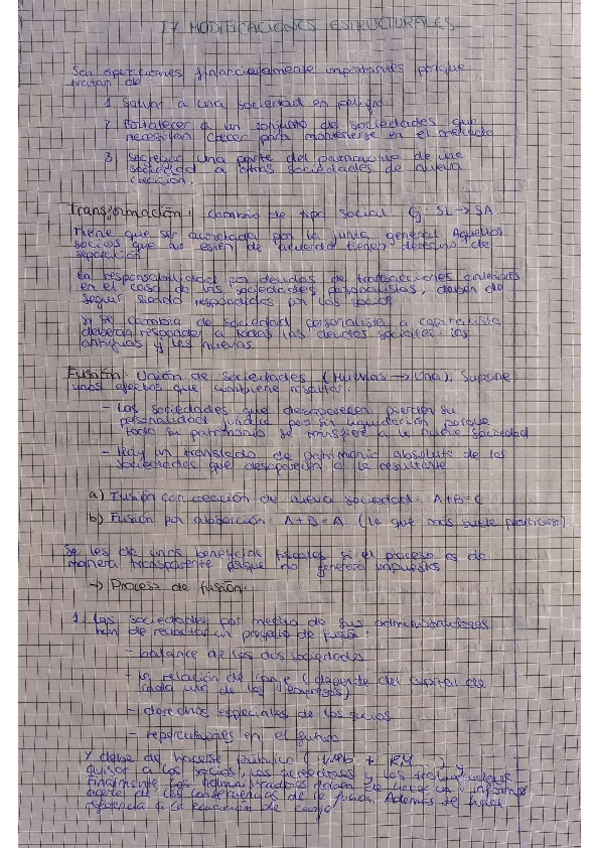 17 MODIFICACIONES ESTRUCTURALES
Son operaciones financieramente importantes porque
tratan de
1 Salvar a una sociedad en peligro
2 Fortalecer a un conjunto de sociedades que
necesitan crecer para mantenerse en el mercado
3 Segregar una parte del patrimonio de una
sociedad a otras sociedades de nueva
creación.
Transformación: cambio de tipo social Ej: SL → SA
Tiene que ser acordada por la junta general Aquellos
socios que no estén de acuerdo tienen derecho de
separación
En responsabilidad por deudas de transacciones anteriores
en el caso de las sociedades personalistas, deben de
seguir siendo respondidas por los socios
Si se cambia de sociedad personalista a capitalista
deberán responder a todas las deudas sociales los
antiguos y los nuevos
Fusión: Unión de sociedades (Muchas → Una). Supone
unos efectos que conviene resaltar:
- Las sociedades que desaparecen pierden su
personalidad jurídica pero sin liquidación porque
todo su patrimonio se transfiere a la nueva sociedad
- Hay un translado de patrimonio absoluto de las
sociedades que desaparecen a la resultante
a) Fusión con creación de nueva sociedad: A+B=C
b) Fusión por absorción: A+B=A (lo que más suele practicarse)
Se les da unos beneficios fiscales si el proceso es de
manera trasparente no impuestos
→ Proceso de fusión:
1. Las sociedades por medio de sus administradores
han de redactar un proyecto de fusión:
- balance de las dos sociedades
- la relación de canje (depende del capital de
cada una de las empresas)
- derechos especiales de los socios
- repercusiones en el futuro
Y debe de hacerse público (web + RM...) y
avisar a los socios, los acreedores y los
Finalmente los administradores deben de hacer un informe
acerca de las consecuencias de la fusión. Además se hace
referencia a la ecuación de canje